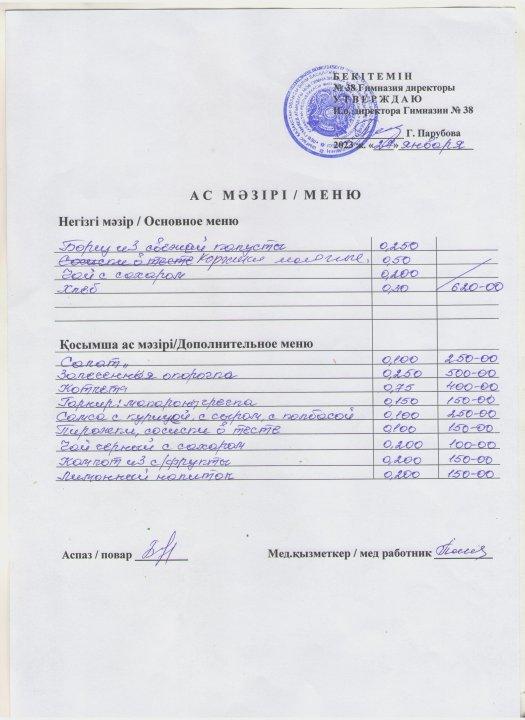 БЕКІТЕМІН
№ 38 Гимназия директоры
УТВЕРЖДАЮ
И.о. директора Гимназии № 38
Г. Парубова
2023 ж. «24» января
АС МӘЗІРІ / МЕНЮ
Негізгі мәзір / Основное меню
Борщ из свежей капусты 0,250
Сосиски в тесте Коржики молочные. 0,50
Чай с сахаром 0,200
Хлеб 0,30 620-00
Қосымша ас мәзірі/Дополнительное меню
Салат 0,100 250-00
Запеченная 0,250 500-00
Котлета 0,75 400-00
Гарнир: макароны, гречка 0,150 150-00
Самса с курицей, с сыром, с колбасой 0,100 250-00
Пирожки, сосиски в тесте 0,100 150-00
Чай черный с сахаром 0,200 100-00
Компот из с/фрукты 0,200 150-00
Лимонный напиток 0,200 150-00
Аспаз / повар Мед.қызметкер / мед работник